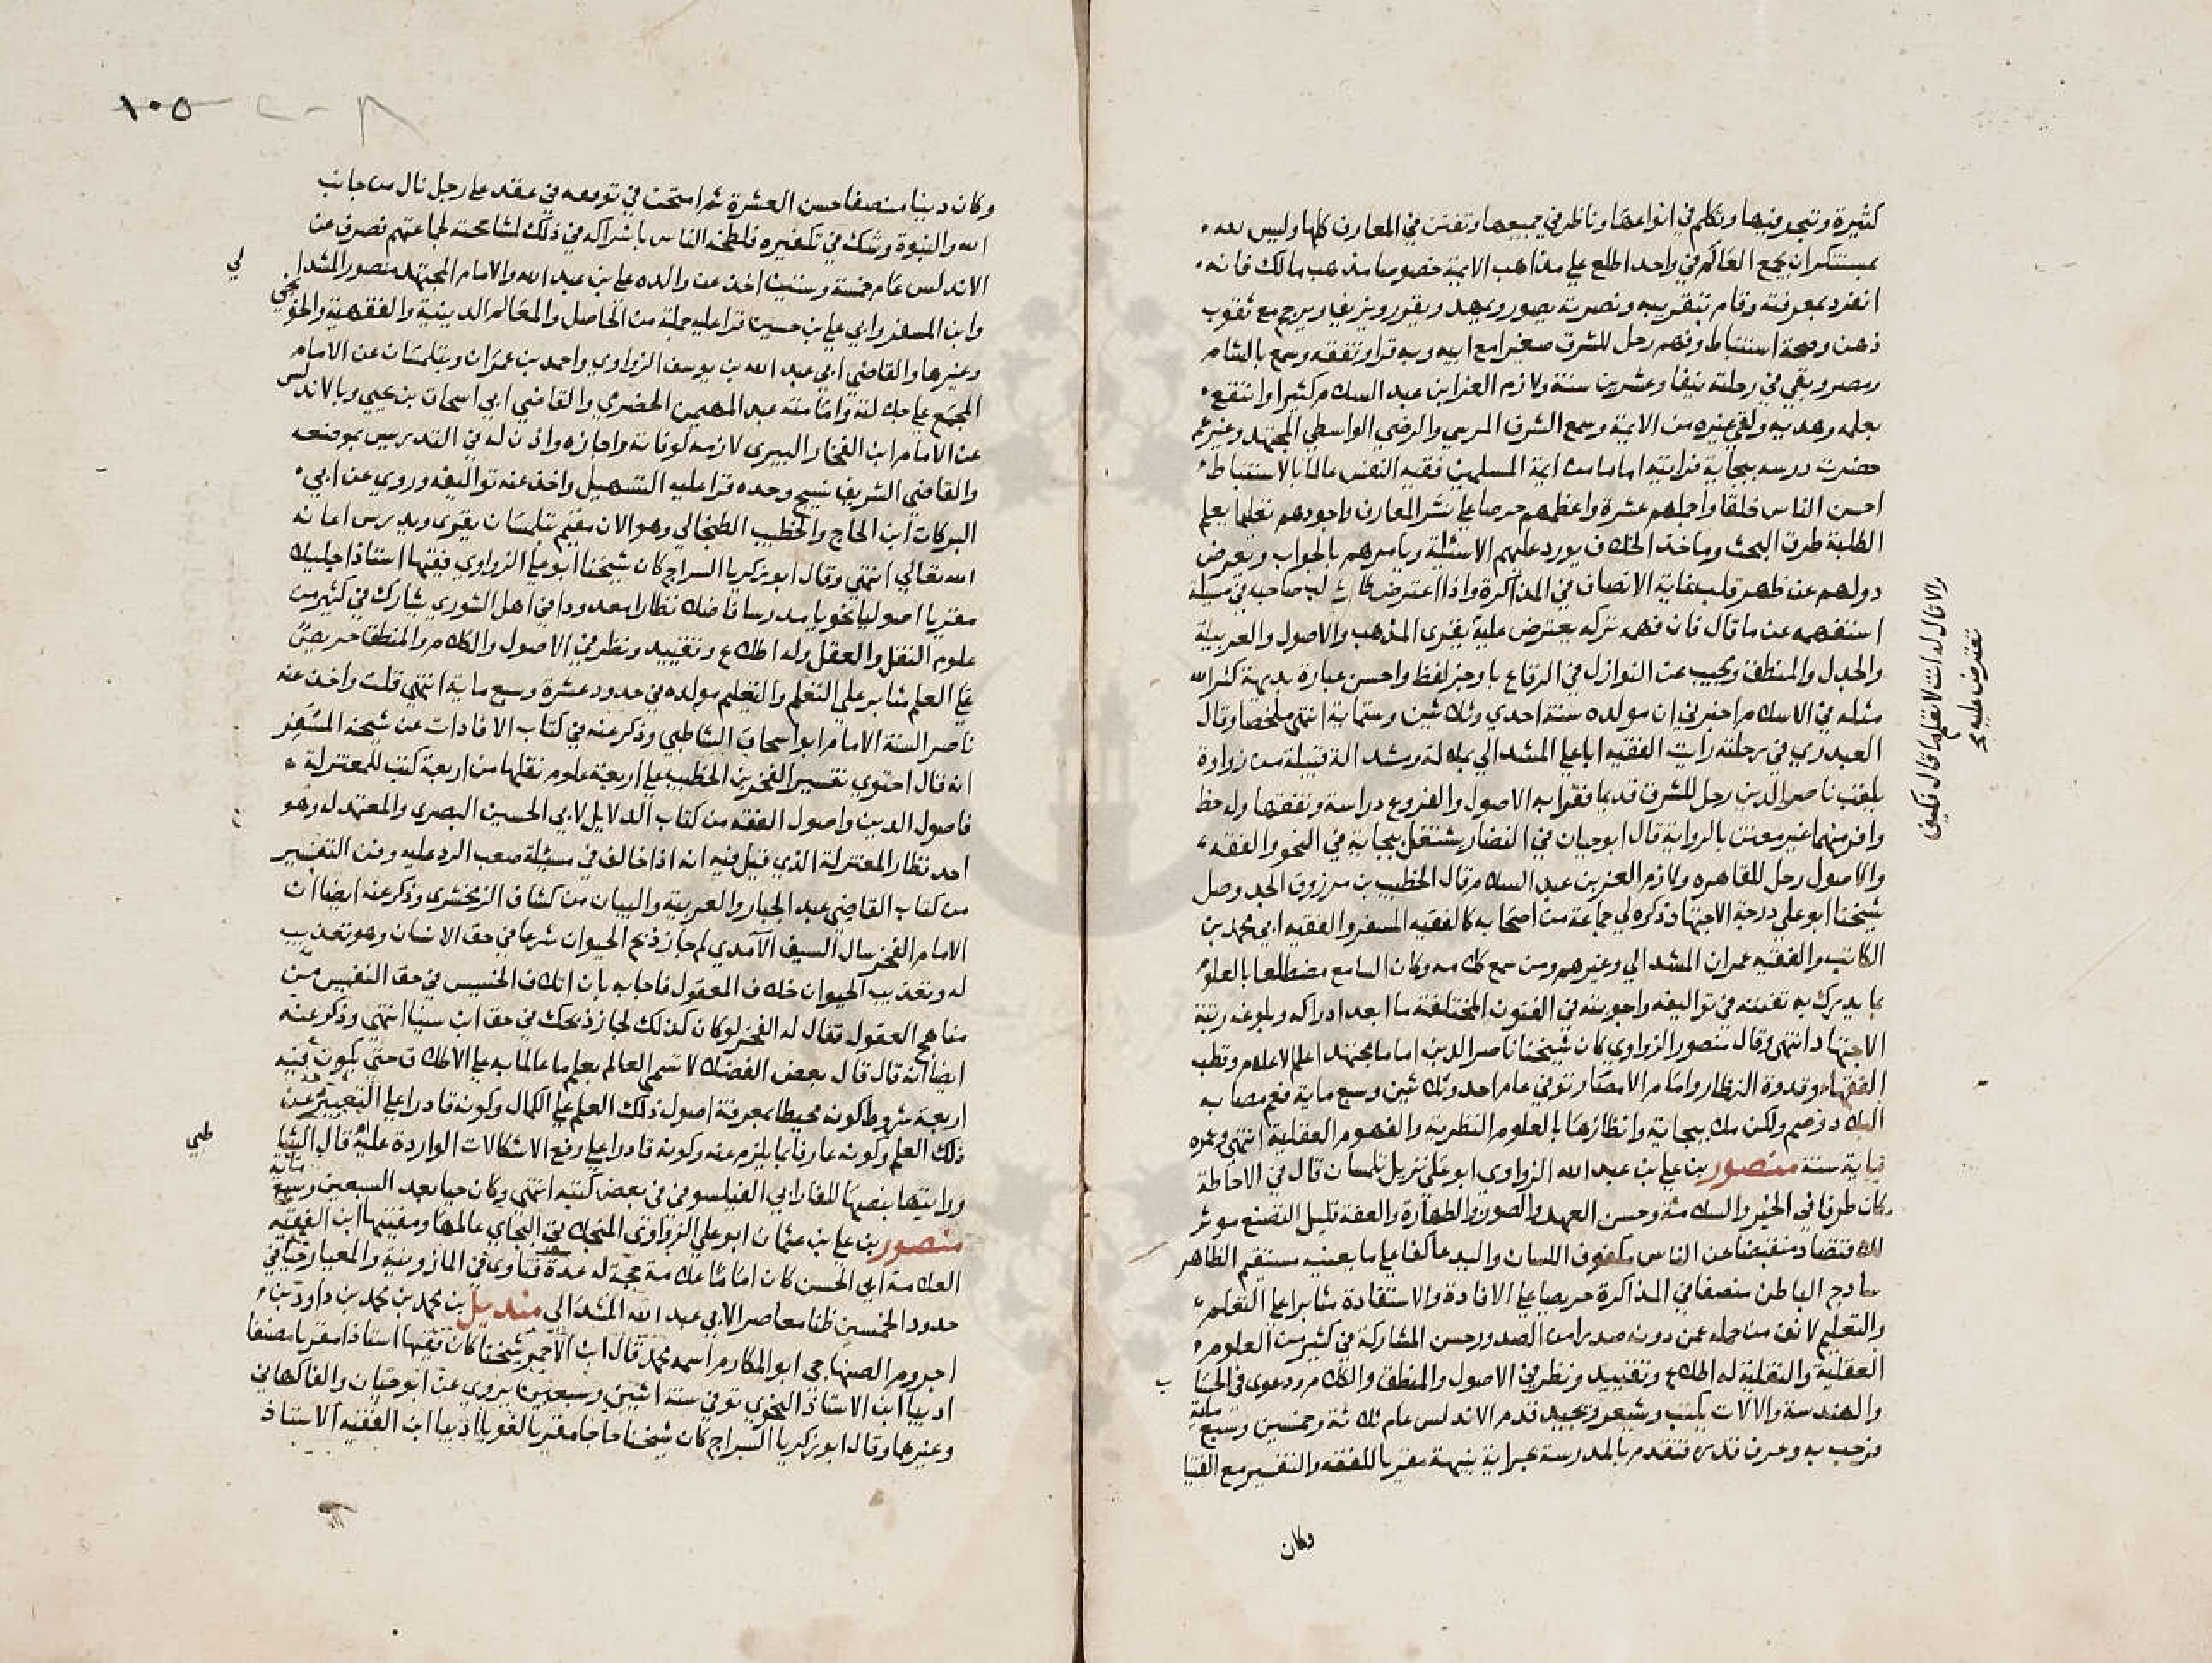 كثيرة وتبحر فيها وتكلم في انواعها وناظر في جميعها وتفنن في المعارف كلها وليس لله
بمستنكر ان يجمع العالم في واحد اطلع على مذاهب الايمة خصوصا مذهب مالك فانه
انفرد بمعرفته وقام بتقريبه ونصرته يصور ويمهد ويقرر ويزيف ويرجح مع ثقوب
ذهن وصحة استنباط وفهم رحل للمشرق صغيرا مع ابيه وبه قرا وتفقه وسمع بالشام
ومصر وبقي في رحلته نيفا وعشرين سنة ولازم العز ابن عبد السلام كثيرا وانتفع
بعلمه وهديه ولقي غيره من الايمة وسمع الشرف المرسي والرضي الواسطي المجتهد وغيرهم
حضرت درسه ببجاية فرايته اماما من ايمة المسلمين فقيه النفس عالما بالاستنباط
احسن الناس خلقا واجملهم عشرة واعظمهم حرصا على نشر المعارف واجودهم تعليما يعلم
الطلبة طرق البحث وماخذ الخلاف يورد عليهم الاسئلة ويامرهم بالجواب ويعرض
دولهم عن ظهر قلب بغاية الانصاف في المذاكرة واذا اعترض طالب صاحبه في مسيلة
استفهمه عن ما قال فان فهمه تركه يعترض عليه يقرى المذهب والاصول والعربية
والا قال له انت لا تعلم ما قال فكيف
تعترض عليه
والجدل والمنطق ويجيب عن النوازل في الرقاع باوجز لفظ واحسن عبارة بديهة كثر الله
مثله في الاسلام اخبرني ان مولده سنة احدي وثلاثين وستماية انتهى ملخصا وقال
العبدري في رحلته رايت الفقيه ابا علي المشدالي بملالة ومشدالة قبيلة من زواوة
يلقب ناصر الدين رحل للشرق قديما فقرا به الاصول والفروع دراسة وتفقها وله حظ
وافر منهما غير معتن بالرواية قال ابو حيان في النضار يشتغل ببجاية في النحو والفقه
والاصول رحل للقاهره ولازم العز بن عبد السلام قال الخطيب بن مرزوق الجد وصل
شيخنا ابو علي درجة الاجتهاد ذكره لي جماعة من اصحابه كالفقيه المسفر والفقيه ابي محمد بن
الكاتب والفقيه عمران المشدالي وغيرهم ومن سمع كلامه وكان السامع مضطلعا بالعلوم
بما يدرك به تفننه في تواليفه واجوبته في الفنون المختلفة ما ابعد ادراكه وبلوغه رتبة
الاجتهاد انتهى وقال منصور الزواوي كان شيخنا ناصر الدين اماما مجتهدا علم الاعلام وقطب
الفقهاء وقدوة النظار وامام الامصار توفي عام احد وثلاثين وسبع ماية فعم مصابه
البلاد وخص ولكن ملا بجاية وانظارها بالعلوم النظرية والفهوم العقلية انتهى وعمره
ماية سنة منصور بن علي بن عبد الله الزواوى ابو علي نزيل تلمسان قال في الاحاطة
كان طرفا في الخير والسلامة وحسن العهد والصون والطهارة والعفة قليل التصنع موثر
للاقتصاد منقبضا عن الناس مكفوف اللسان واليد عاكفا على ما يعنيه مستقيم الظاهر
سادج الباطن منصفا في المذاكرة حريصا على الافادة والاستفادة مثابرا على التعلم
والتعليم لا نف من حمله عمن دونه صدرا من الصدور حسن المشاركة في كثير من العلوم
العقلية والنقلية له اطلاع وتقييد ونظر في الاصول والمنطق والكلام ودعوى في الحساب
والهندسة والالات يكتب ويشعر ويجيد قدم الاندلس عام ثلاثة وخمسين وسبع ماية
فرحب به وعرف قدره فتقدم بالمدرسة بجراية نبيهة مقريا للفقه والتفسير مع الفتيا
وكان
١٠٥
وكان دينا منصفا حسن العشرة ثم امتحن في توقعه في عقد على رجل نال من جانب
الله والنبوة وشك في تكفيره فلطخه الناس باشراكه في ذلك لمشاحنة لجماعتهم فصرف عن
الاندلس عام خمسة وستين اخذ عن والده علي بن عبد الله والامام المجتهد منصور المشدالي
وابن المسفر وابي علي بن حسين قرا عليه جملة من الحاصل والمعالم الدينية والفقهية والخونجي
وغيرها والقاضي ابي عبد الله بن يوسف الزواوي واحمد بن عمران وبتلمسان عن الامام
المجمع على جلالته وامامته عبد المهيمن الحضري والقاضي ابي اسحاق بن يحيى وبالاندلس
عن الامام ابن الفخار البيرى لازمه لوفاته واجازه واذن له في التدريس بموضعه
والقاضي الشريف نسيج وحده قرا عليه التسهيل واخذ عنه تواليفه وروي عن ابي
البركات ابن الحاج والخطيب الطنجالي وهو الان مقيم بتلمسان يقرى ويدرس اعانه
الله تعالي انتهى وقال ابو زكريا السراج كان شيخنا ابو علي الزواوي فقيها استاذا جليلا
مقريا اصوليا نحويا مدرسا فاضلا نظارا معدودا في اهل الشورى يشارك في كثير من
علوم النقل والعقل وله اطلاع وتقييد ونظر في الاصول والكلام والمنطق حريص
على العلم مثابر على التعلم والتعليم مولده في حدود عشرة وسبع ماية انتهى قلت واخذ عنه
ناصر السنة الامام ابو اسحاق الشاطبي وذكر عنه في كتاب الافادات عن شيخه المسفر
انه قال احتوي تفسير الفخر بن الخطيب على اربعة علوم نقلها من اربعة كتب للمعتزلة
فاصول الدين واصول الفقه من كتاب الدلايل لابي الحسين البصرى والمعتمد له وهو
احد نظار المعتزلة الذي قيل فيه انه اذا خالف في مسئلة صعب الرد عليه وفن التفسير
من كتاب القاضي عبد الجبار والعربية والبيان من كشاف الزمخشرى وذكر عنه ايضا ان
الامام الفخر سال السيف الآمدي لم جاز ذبح الحيوان شرعا في حق الانسان وهو تعذيب
له وتعذيب الحيوان خلاف المعقول فاجابه بان اتلاف الخسيس في حق النفيس من
مناهج العقول فقال له الفخر لو كان كذلك لجاز ذبحك في حق ابن سينا انتهى وذكر عنه
ايضا انه قال قال بعض الفضلا لا تسمى العالم بعلم ما عالما به على الاطلاق حتى يكون فيه
اربعة شروط كونه محيطا بمعرفة اصول ذلك العلم على الكمال وكونه قادرا على التعبير عن
ذلك العلم وكونه عارفا بما يلزم عنه وكونه قادرا على رفع الاشكالات الواردة عليه قال الشاطبي
ورايتها بنصها للفارابي الفيلسوف في بعض كتبه انتهى وكان حيا بعد السبعين وسبع ماية
منصور بن علي بن عثمان ابو علي الزواوي المنجلاتي البجاي عالمها ومفتيها ابن الفقيه
العلامة ابي الحسن كان اماما علامة حجة له عدة فتاوى في المازونية والمعيار حيا في
حدود الخمسين ظنا معاصر الابي عبد الله المشدالى منديل بن محمد بن محمد بن داود بن
اجروم الصنهاجي ابو المكارم اسمه محمد قال ابن الاحمر شيخنا كان فقيها استاذا مقريا مصنفا
اديبا ابن الاستاذ النحوي توفي سنة اثنين وسبعين يروي عن ابو حيان والفاكهاني
وغيرها وقال ابو زكريا السراج كان شيخنا حاجا مقريا لغويا اديبا ابن الفقيه الاستاذ